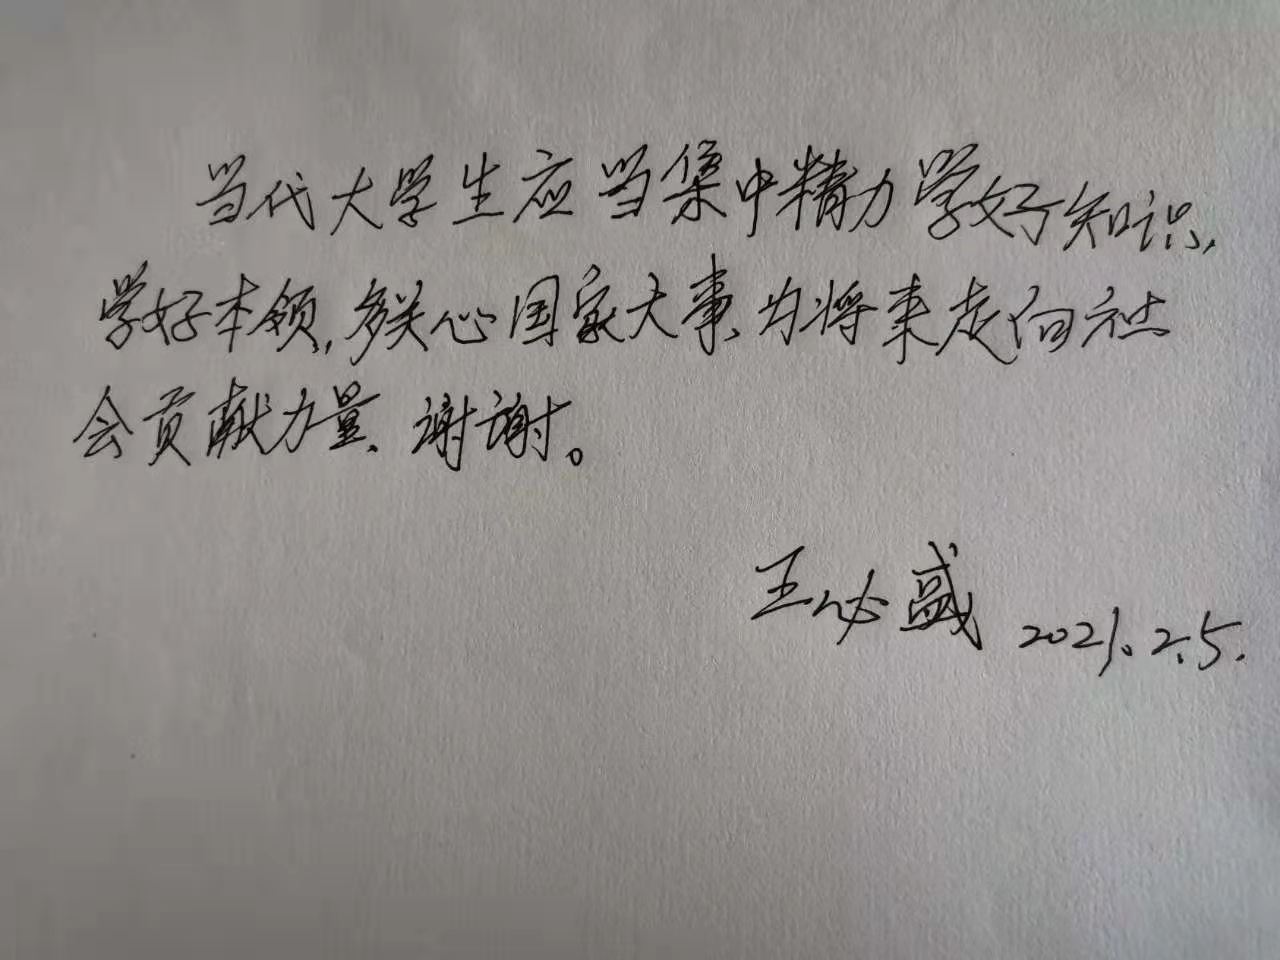 当代大学生应当集中精力学好知识,
学好本领,多关心国家大事、为将来走向社
会贡献力量、谢谢。
王必盛 2021.2.5.